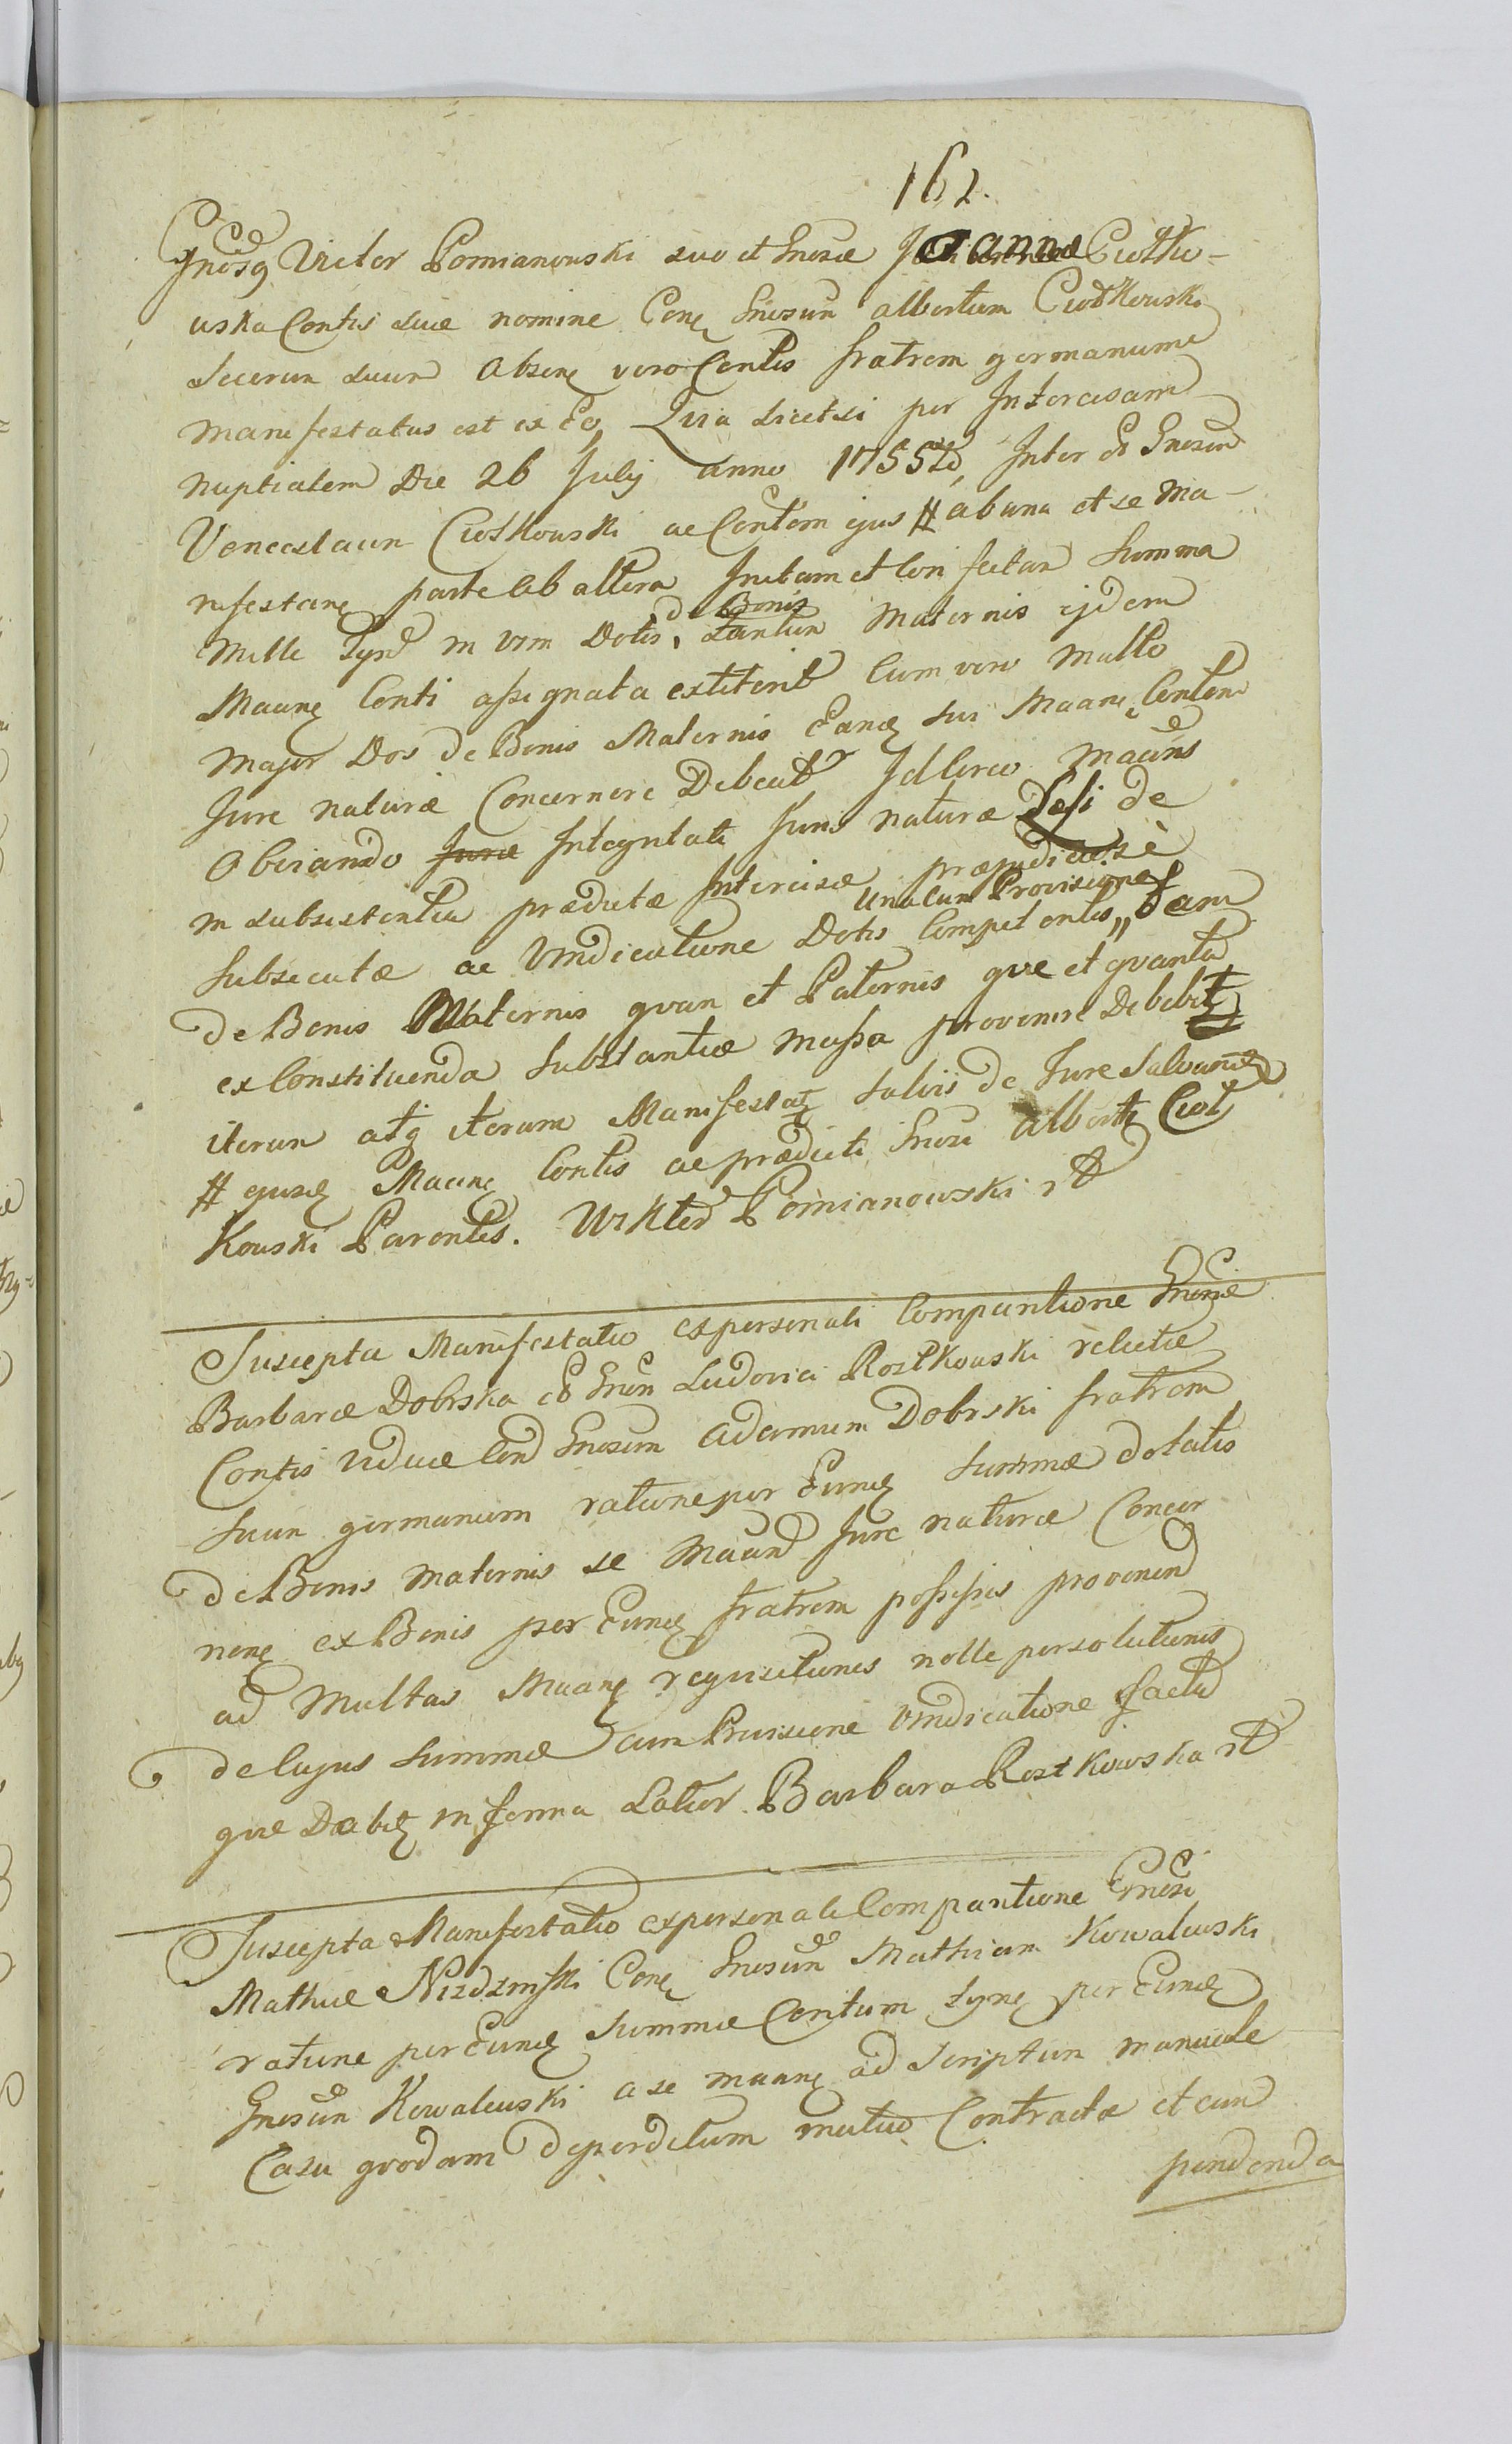 162.
Gnosq Victor Pomianowski suo et Gnosæ Joannæ Ciołko-
wska Contis suæ nomine Conę Gnosum Albertum Ciołkowski
Socerum suum Absenę vero Contis fratrem germanum
manifestatus est ex Eo, Quia licet si per Intercisam
nuptialem Die 26 July anno 1755to, Inter Gnosum
Venceslaum Ciołkowski ac Contem ejus # ab una et se Ma-
nifestanę parte ab altera Initam et Confectam Summa
Mille Tynf in vim Dotis, de Bonis tantum Maternis ejdem
Maanę Conti assignata extiterit Cum vero multo
Major Dos de Bonis Maternis Eandę sui Maanę Contem
Jure naturæ Concernere Debeat Idcirco Maans
Obviando Integritati Juris naturæ Læsi de
in subsistentia prædictæ Intercisæ præjudiciose
subsecutæ ac Vindicatione Dotis Competentis, una cum Provisione tam
de Bonis Maternis quam et Paternis quæ et quanta
ex Constituenda Substantiæ massa provenire Debebit
iterum atq iterum Manifestatę Salvis de Jure Salvandę
# ejusdę Maanę Contis ac prædicti Gnosi Alberti Cioł
kowski Parentis. Wikter Pomianowski
Suscepta Manifestatio ex personali Comparitione Gnosæ
Barbaræ Dobrska Gnosi Ludovici Rostkowski relictæ
Contis viduæ Con Gnosum Adamum Dobrski fratrem
suum germanum ratione per Eundę Summæ dotalis
de Bonis maternis se Maand Jure naturæ Concer
nenę ex Bonis per Eundę fratrem possessis proveniend
ad multas Maanę requisitiones nolle persolutionis
de Cujus summæ cum Provisione vindicatione facta
quæ Dabitę in forma Latior. Barbara Rostkowska
Suscepta Manifestatio ex personali Comparitione Gnosi
Mathiæ Nizdzinski Conę Gnosum Mathiam Kowalewski
ratione per Eundę Summæ Centum Tynę per Eundę
Gnosum Kowalewski a se maanę ad Scriptum manuale
Casu quodam deperditum mutuo Contractæ et eun
pendenda